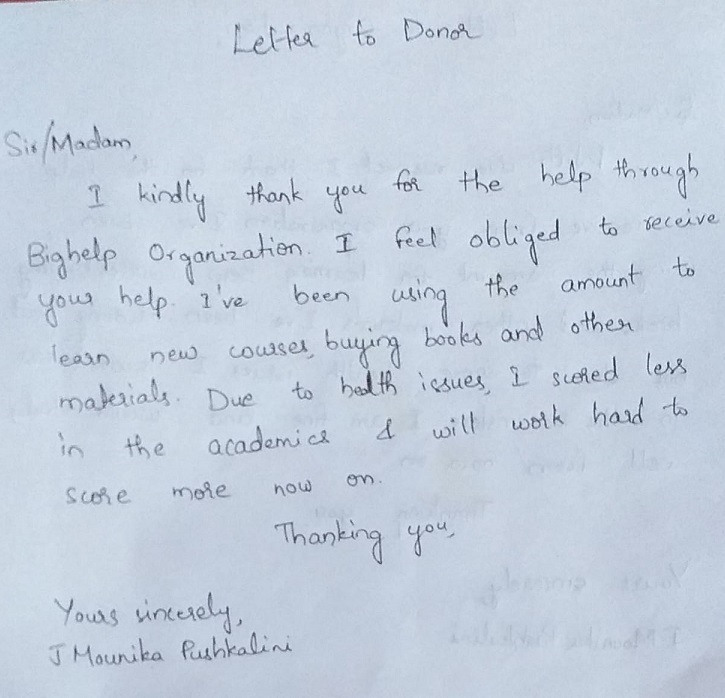 Letter to Donor
Sir/Madam,
I kindly thank you for the help through
Bighelp Organization. I feel obliged to receive
your help. I've been using the amount to
learn new courses, buying books and other
materials. Due to health issues, I scored less
in the academics & will work hard to
score more now on.
Thanking you,
Yours sincerely,
J Mounika Pushkalini